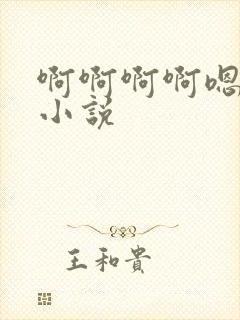 啊啊啊啊嗯
小說
王和貴